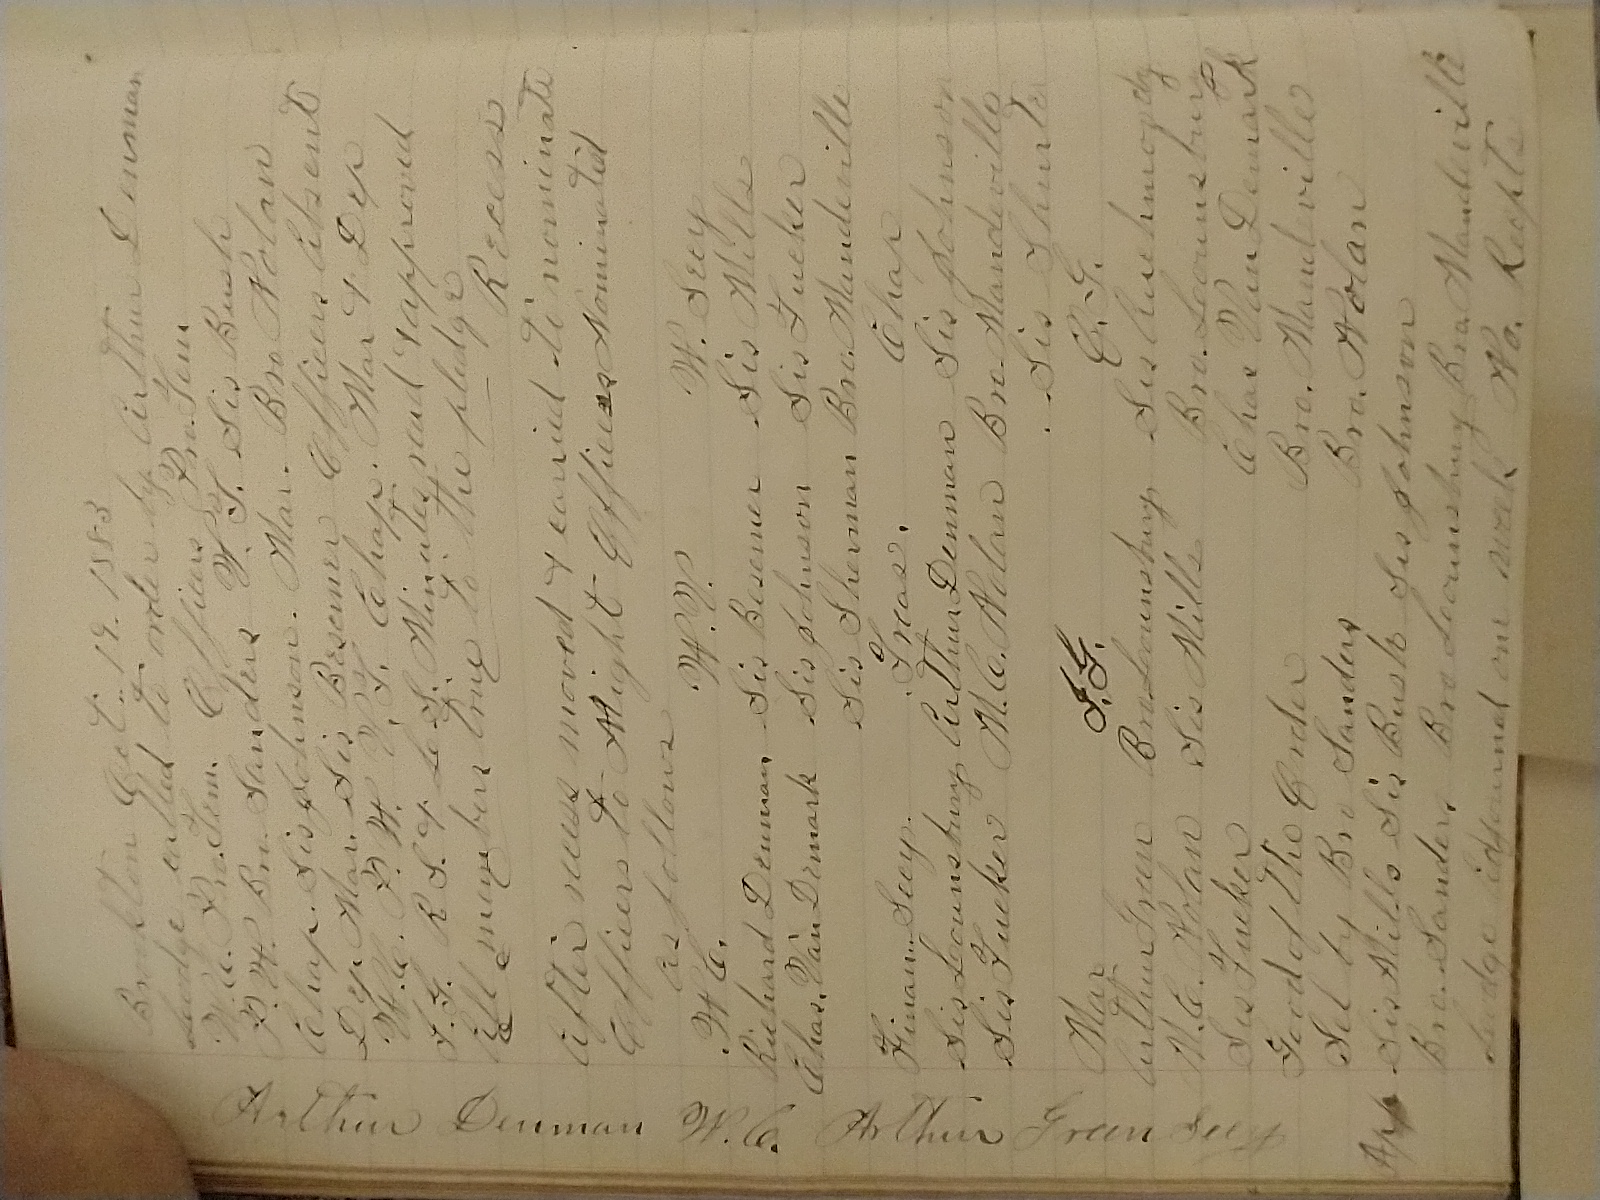 Brookton Oct. 19. 1883
Lodge called to order by Arthur Denman
W.C. Pro.Tem. Officers Pro.Tem
P.W. Bro. Sanders V.T. Sis Bush
Chap. Sis Johnson. Mar. Bro Nolan
Dep. Mar. Sis Besemer Officers Absent
W.C. P.W. V.T. Chap. Mar & Dep
I.G. R S. & L. S. Minutes read & approved
All members true to the pledge
Recess
After recess moved & carried to nominate
Officers to Night Officers Nominated
as follows
W C. W.V. W. Secy
Richard Denman Sis Besemer Sis Mills
Chas. Van Demark Sis Johnson Sis Tucker
Sis Sherman Bro. Mandeville
Finan. Secy. Treas. Chap
Sis Lounsbury Arthur Denman Sis Johnson
Sis Tucker M.C. Nolan Bro. Mandeville
Sis Shurter
Mar I.G. O.G.
Arthur Green Bro Lounsbury Sis Auchmoody
M.C. Nolan Sis Mills Bro. Lounsbury
Sis Tucker Chas Van Demark
Good of the Order Bro. Mandeville
Sel by Bro Sanders Bro. Nolan
App Sis Mills Sis Bush Sis Johnson
Bro. Sanders Bro Lounsbury Bro. Mandeville
Lodge Adjourned one week No. Recpts
Arthur Denman W.C. Arthur Green Secy